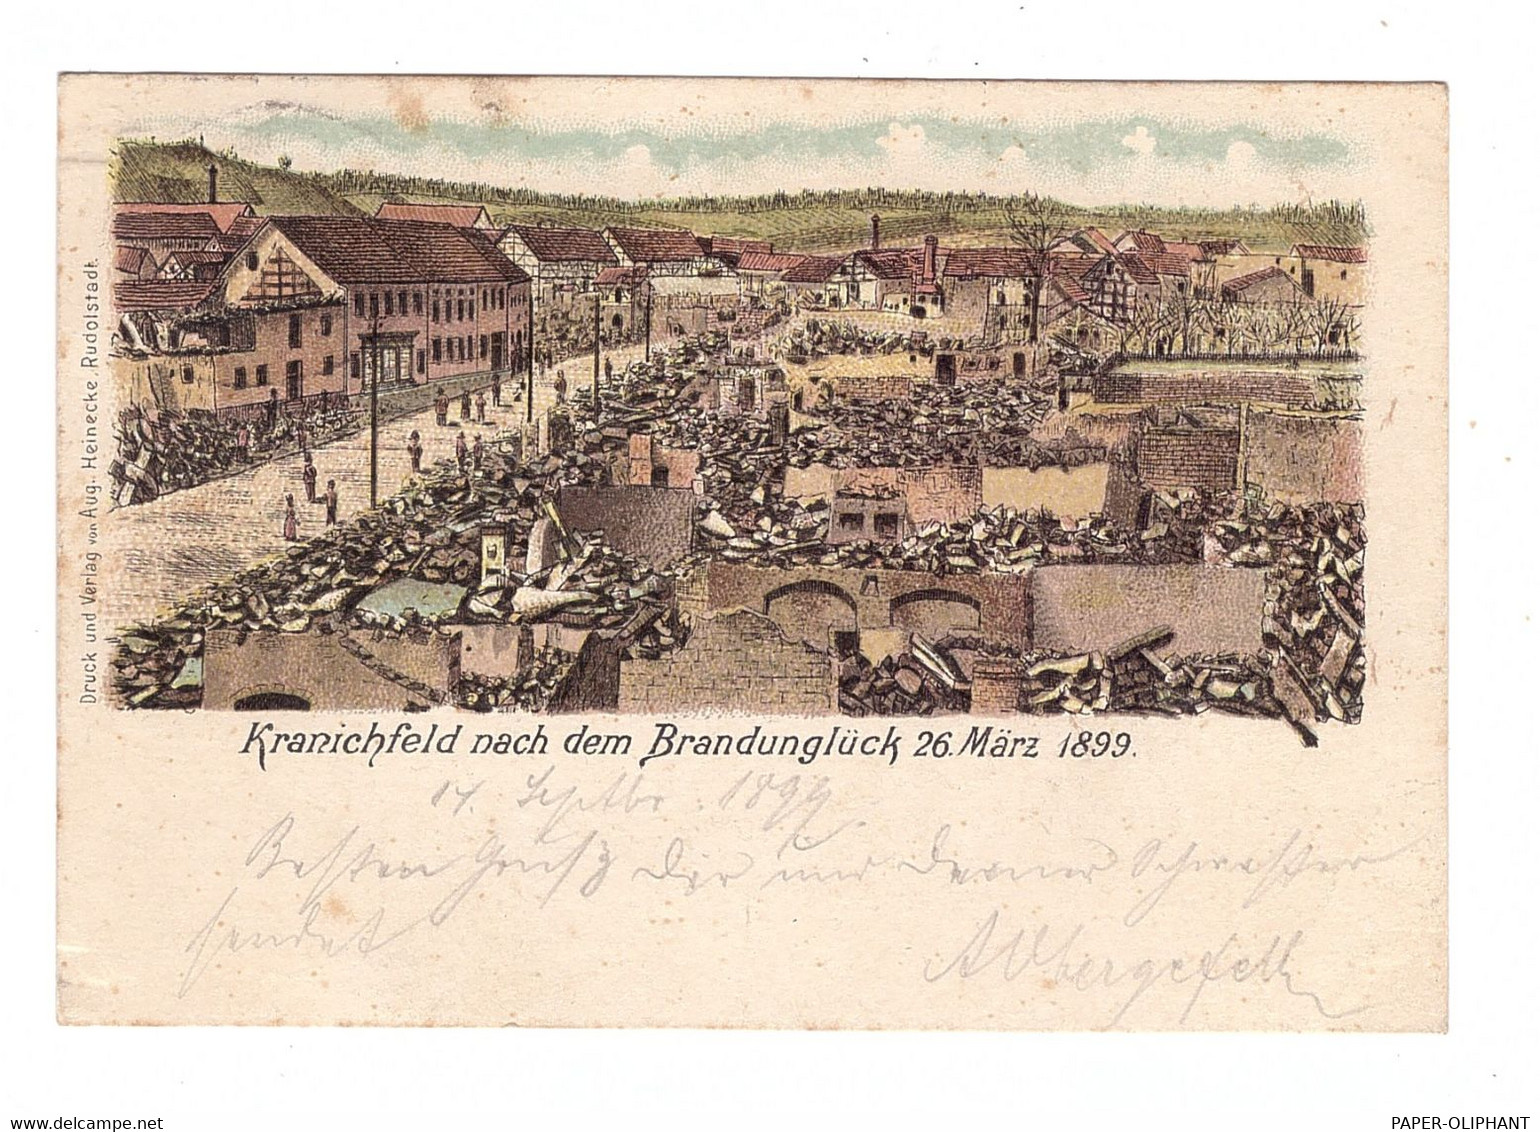 Druck und Verlag von Aug. Heinecke, Rudolstadt.
Kranichfeld nach dem Brandunglück 26. März 1899.
14. Septbr. 1899.
Besten Gruß Dir und Deiner Schwester
sendet
www.delcampe.net
PAPER-OLIPHANT